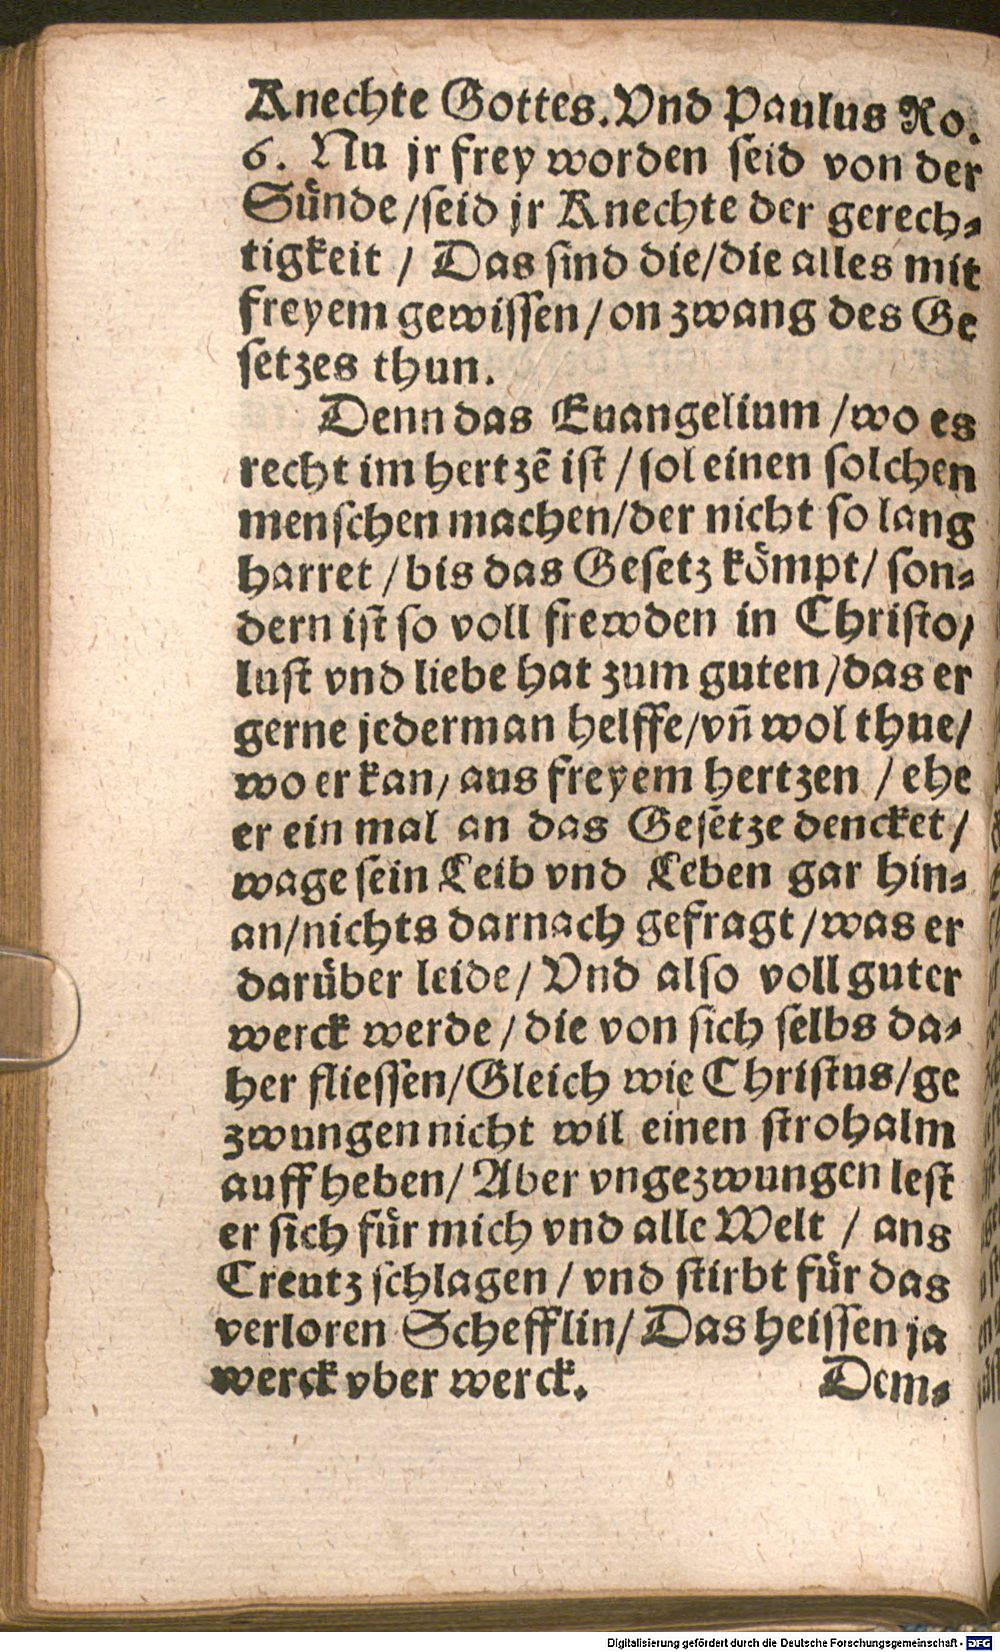 Knechte Gottes. Vnd Paulus Ro.
6. Nu jr frey worden seid von der
Sünde/seid jr Knechte der gerech-
tigkeit / Das sind die/die alles mit
freyem gewissen/on zwang des Ge
setzes thun.
Denn das Euangelium /wo es
recht im hertzē ist / sol einen solchen
menschen machen/der nicht so lang
harret /bis das Gesetz kömpt/ son-
dern ist so voll frewden in Christo/
lust vnd liebe hat zum guten/das er
gerne jederman helffe/vn̄ wol thue/
wo er kan, aus freyem hertzen / ehe
er ein mal an das Gesetze dencket/
wage sein Leib vnd Leben gar hin-
an/nichts darnach gefragt/was er
darüber leide/ Vnd also voll guter
werck werde / die von sich selbs da-
her fliessen/Gleich wie Christus/ge
zwungen nicht wil einen strohalm
auffheben/ Aber vngezwungen lest
er sich für mich vnd alle Welt / ans
Creutz schlagen / vnd stirbt für das
verloren Schefflin/ Das heissen ja
werck vber werck.
Dem-
Digitalisierung gefördert durch die Deutsche Forschungsgemeinschaft - DFG